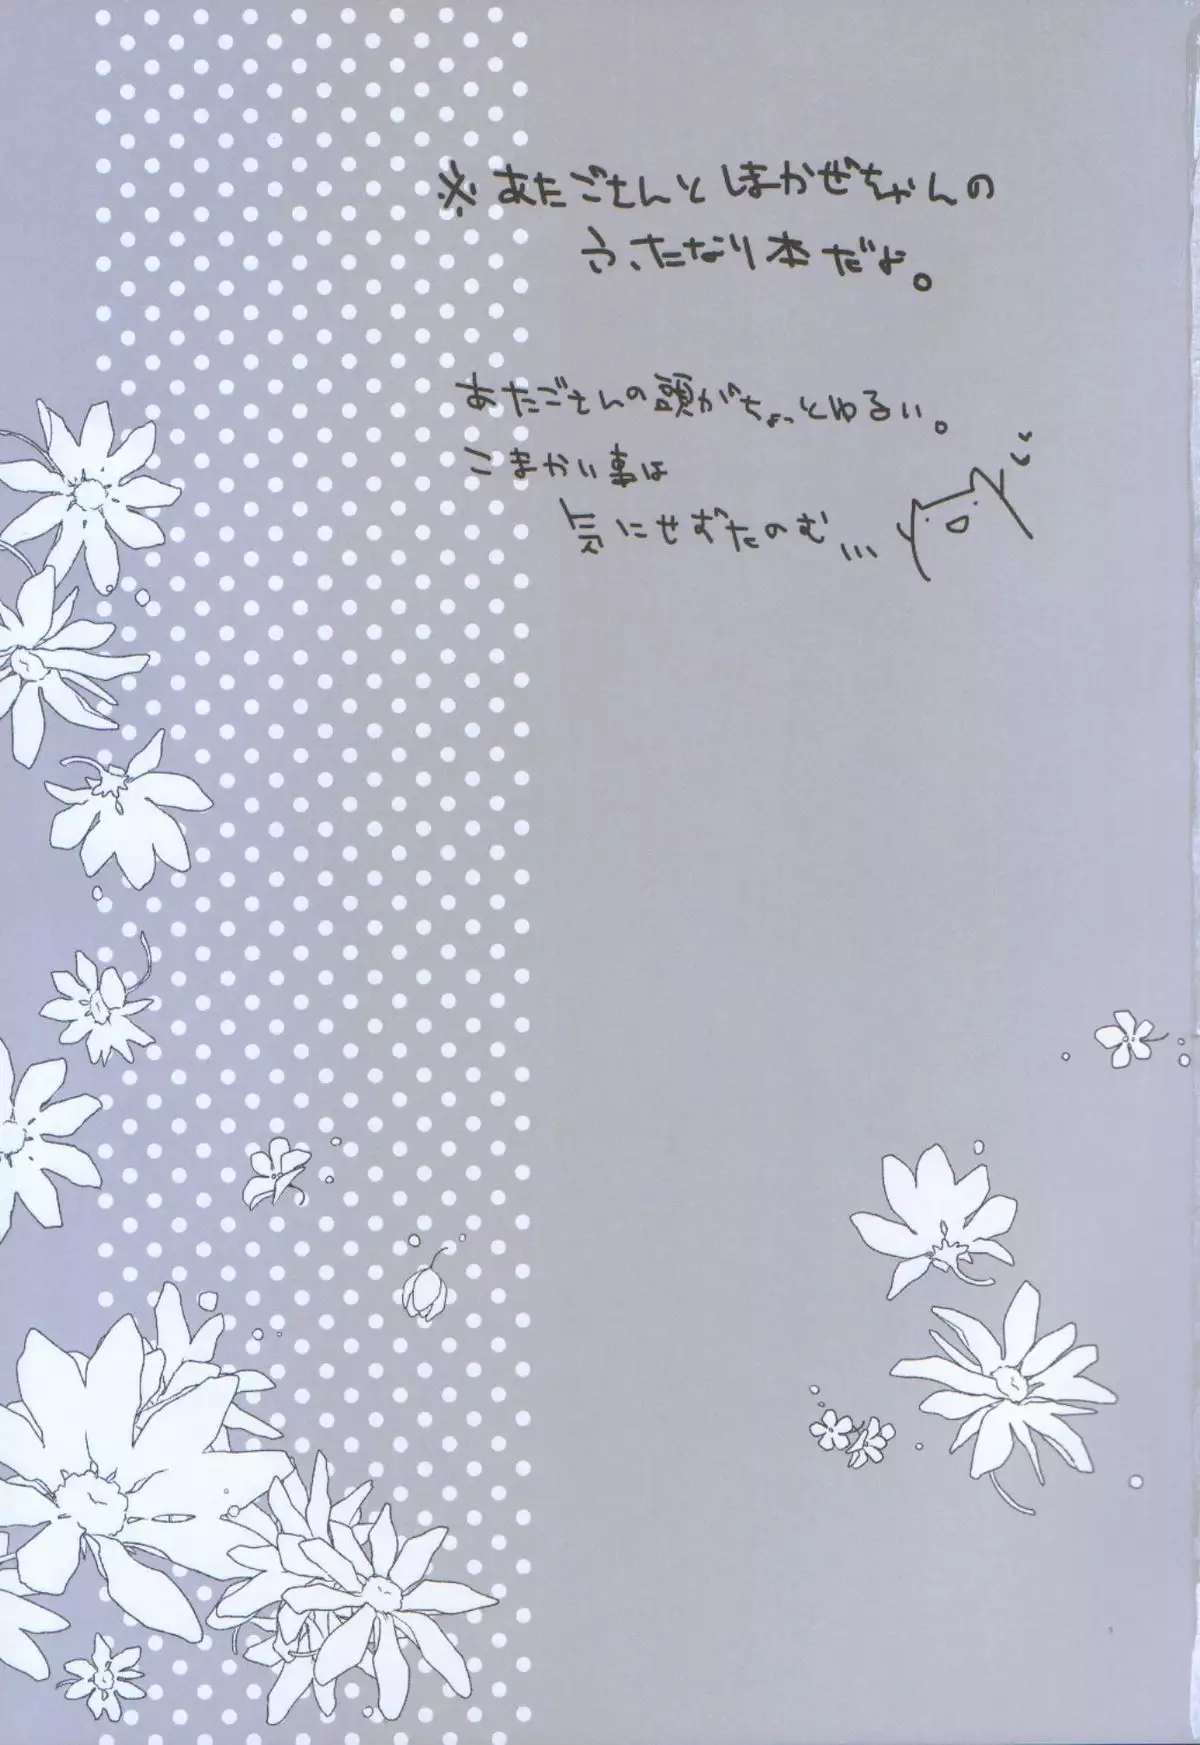 ※あたごさんとしまかぜちゃんの
ふたなり本だよ。
あたごさんの頭がちょっとゆるい。
こまかい事は
気にせずたのむ...